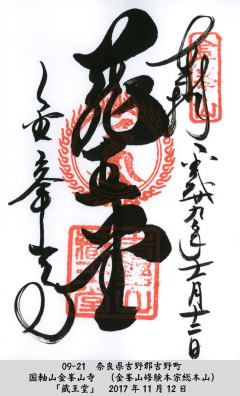 奉拝
蔵王堂
金峯山寺
09-21 奈良県吉野郡吉野町
国軸山金峯山寺 (金峯山修験本宗総本山)
「蔵王堂」 2017年11月12日